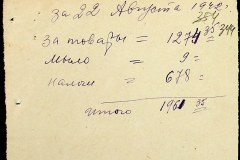 за 22 Августа 1942г.
354
за товары = 1274 35 344
Мыло = 9 =
налоги = 678 =
Итого 1961 35